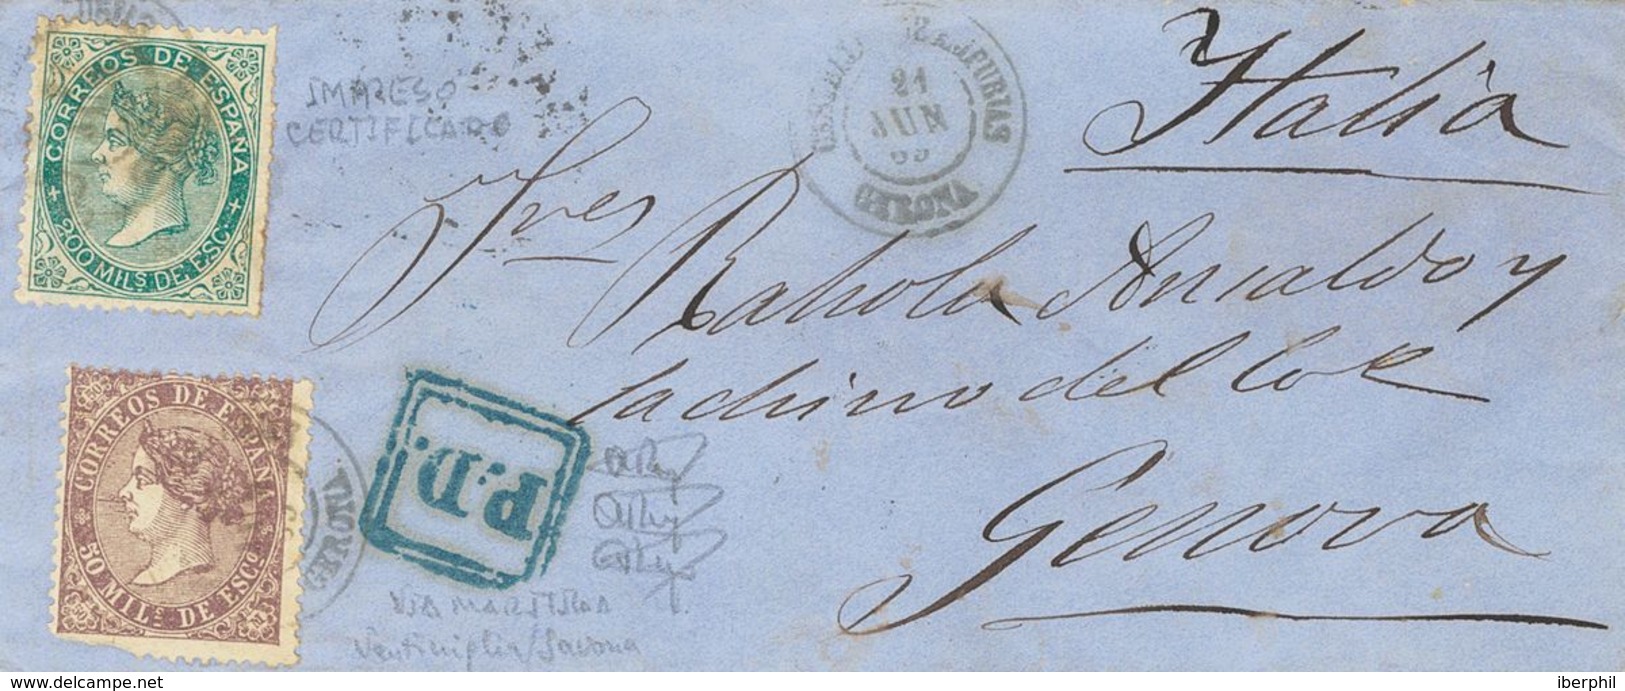 CORREOS DE ESPAÑA
200 MILS. DE ESCO.
IMPRESO
CERTIFICADO
21
JUN
69
GERONA
Italia
Sres
Rahola Ansaldo y
Genova
CORREOS DE ESPAÑA
50 MILS. DE ESCO.
GERONA
P.D.
VIA MARITIMA
Ventimiglia/Savona
www.delcampe.net
iberphil